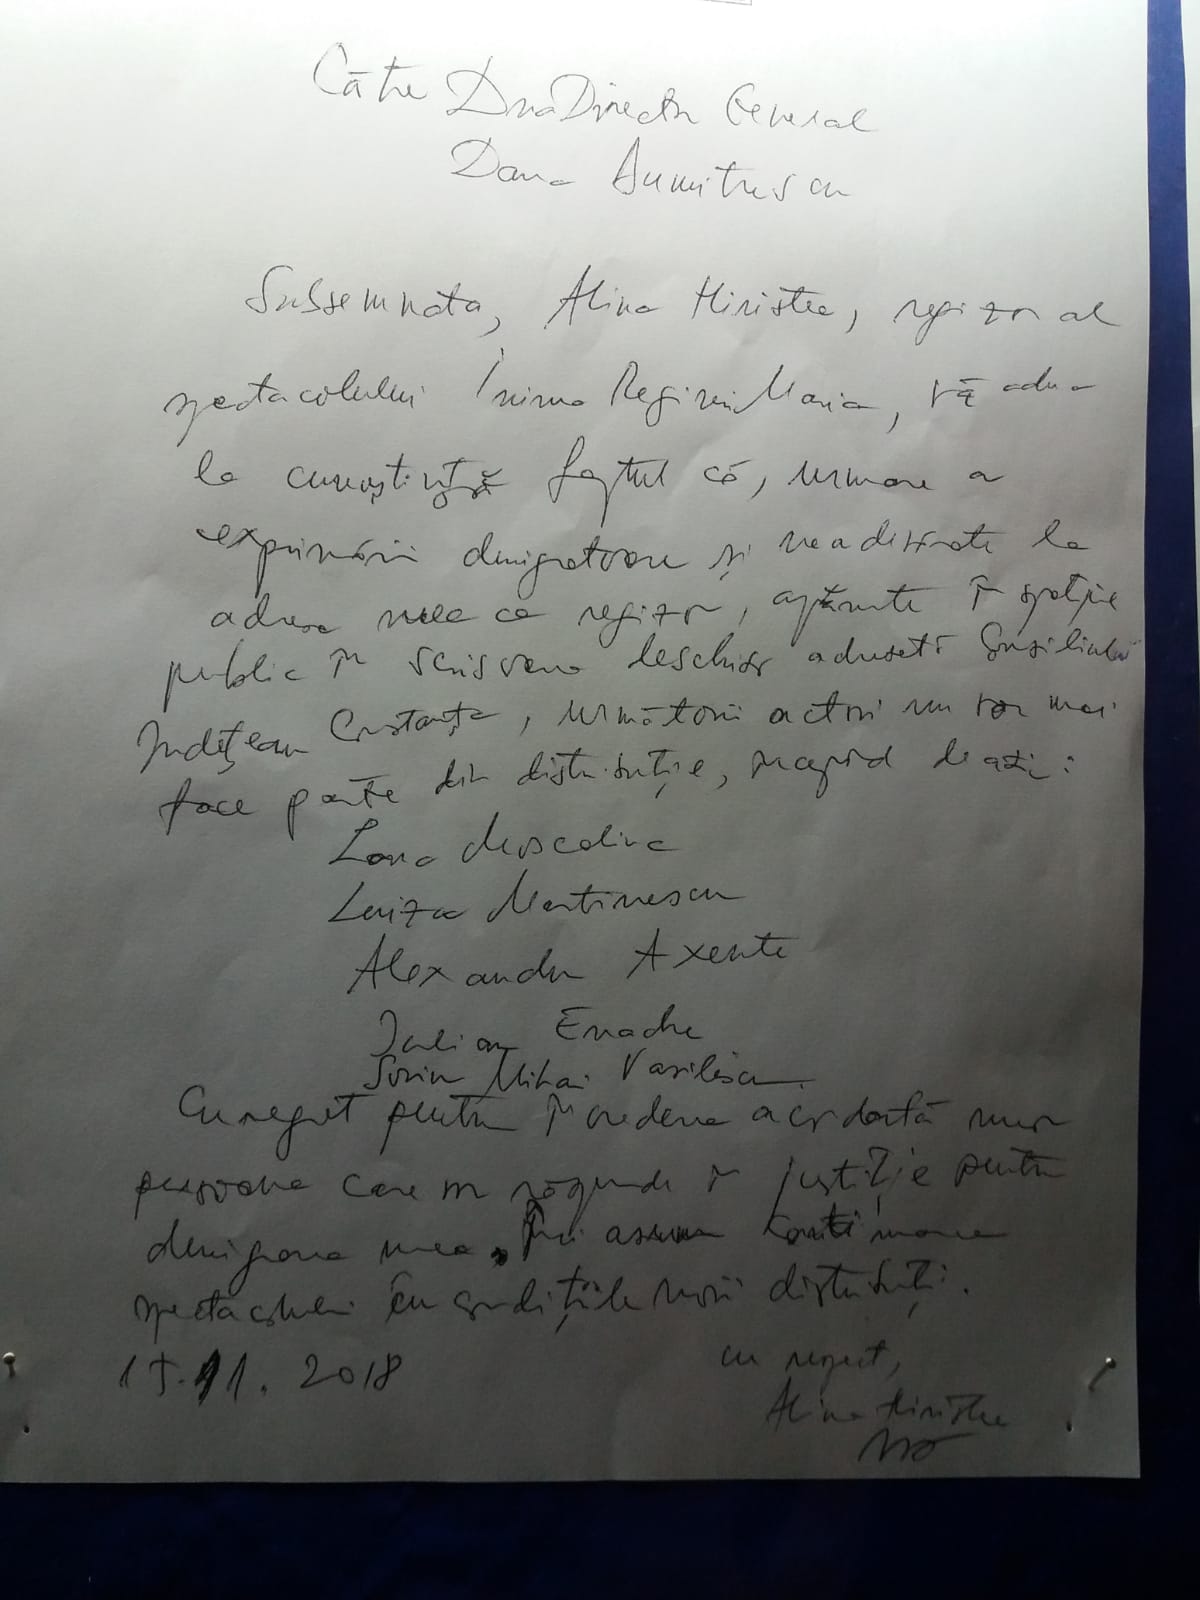 Către Dna Director General
Dana Dumitrescu
Subsemnata, Alina Hiristea, regizor al
spectacolului Inima Reginei Maria, vă aduc
la cunoștință faptul că, urmare a
exprimării denigratoare și neadevărate la
adresa mea ca regizor, apărute în spațiu
public în scrisoarea deschisă adresată Consiliului
Județean Constanța, următorii actori nu vor mai
face parte din distribuție, începând de azi:
Lana Moscaliuc
Luiza Martinescu
Alexandru Axente
Iulian Enache
Sorin Mihai Vasilescu
Cu regret pentru încrederea acordată unor
persoane care vor răspunde în justiție pentru
denigrarea mea. Îmi asum continuarea
spectacolului în condițiile noii distribuții.
15.11.2018
cu respect,
Alina Hiristea